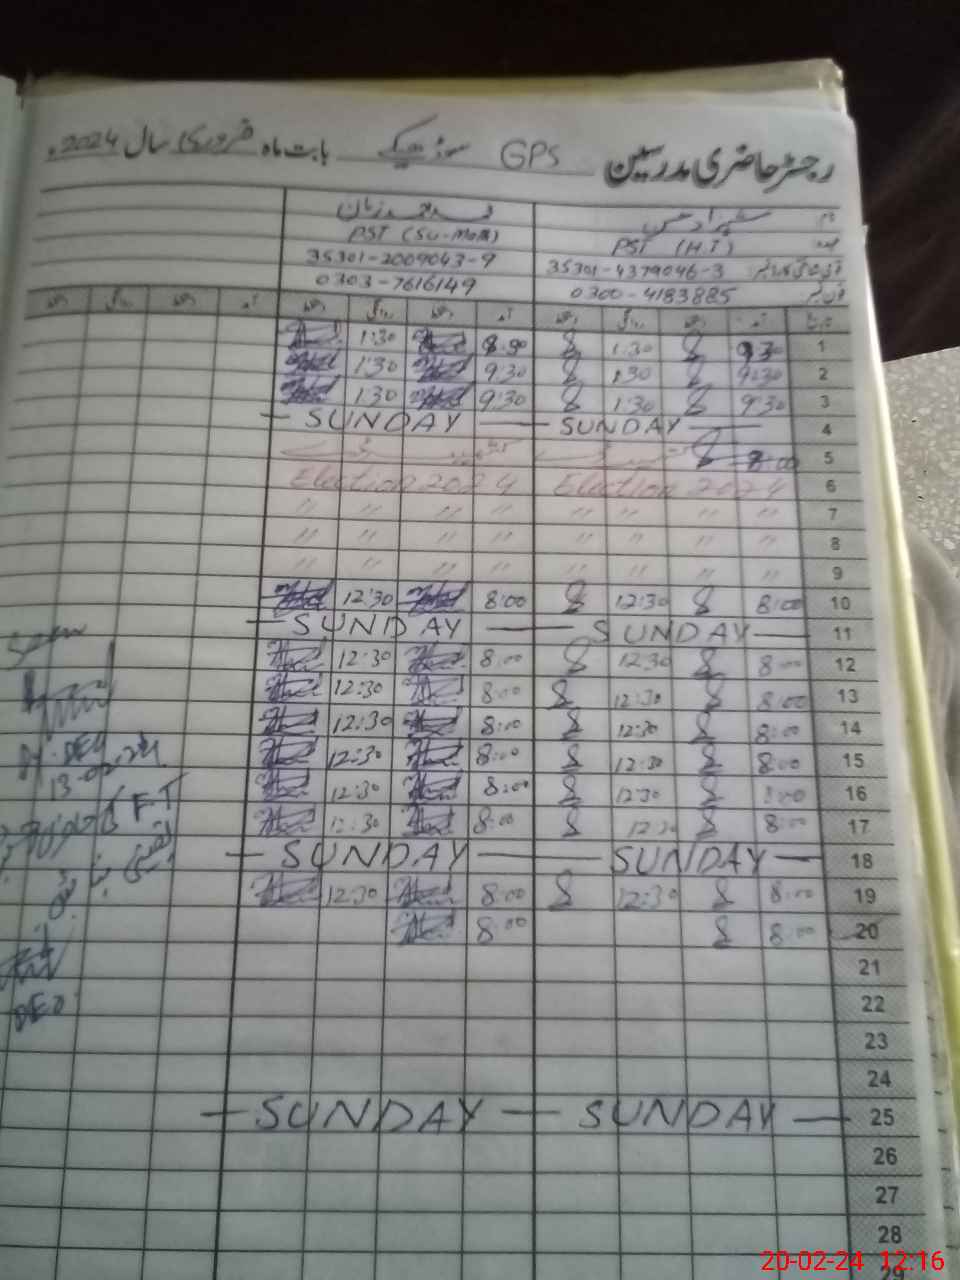 رجسٹر حاضری مدرسین GPS بابت ماہ فروری سال 2024ء
نام شہزاد حسن محمد زمان
عہدہ PST (H.T) PST (SU-MOTO)
35301-4379046-3 35301-2009043-9
فون نمبر 0300-4183885 0303-7616149
تاریخ آمد دستخط روانگی دستخط آمد دستخط روانگی دستخط آمد دستخط روانگی دستخط
1 9:30 1:30 1:30
2 9:30 1:30 9:30 1:30
3 9:30 1:30 9:30 1:30
4 — SUNDAY — SUNDAY —
5 8:00
6 Election 2024 Election 2024
7 〃 〃 〃 〃 〃 〃 〃 〃
8 〃 〃 〃 〃 〃 〃 〃 〃
9 〃 〃 〃 〃 〃 〃 〃 〃
10 8:00 12:30 8:00 12:30
11 — SUNDAY — SUNDAY —
12 8:00 12:30 8:00 12:30
13 8:00 12:30 8:00 12:30
14 8:00 12:30 8:00 12:30
15 8:00 12:30 8:00 12:30
16 8:00 12:30 8:00 12:30
17 8:00 12:30 8:00 12:30
18 — SUNDAY — SUNDAY —
19 8:00 12:30 8:00 12:30
20 8:00 8:00
21
22
23
24
25 — SUNDAY — SUNDAY —
26
27
28
29
Seen
Dy. DEO
13-02-24
F-T
DEO
20-02-24 12:16